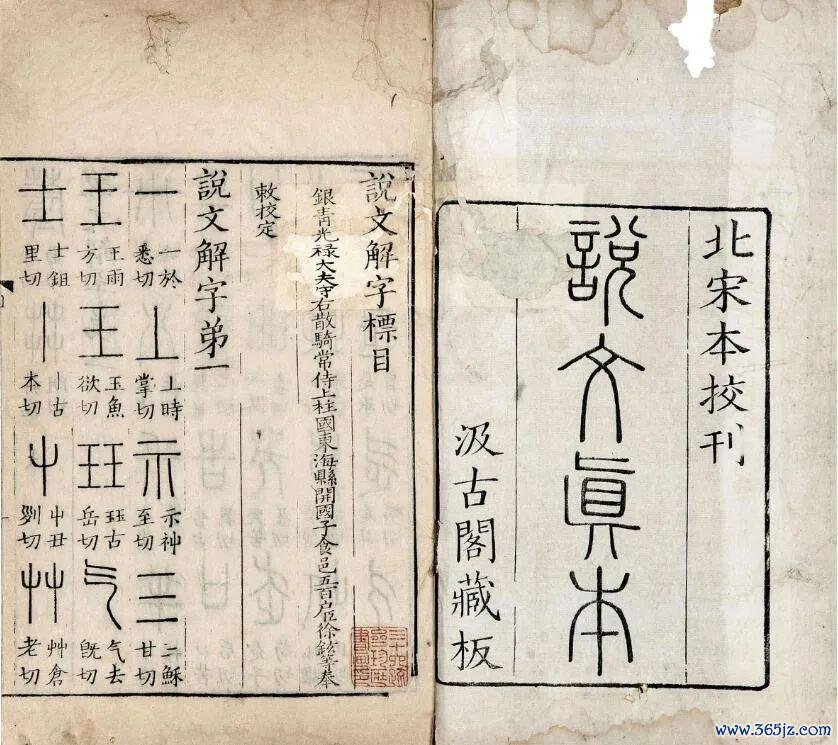 北宋本挍刊
說文眞本
汲古閣藏板
說文解字標目
銀青光祿大夫守右散騎常侍上柱國東海縣開國子食邑五百户臣徐鉉等奉
敕挍定
說文解字弟一
一 一於悉切 丄 上時掌切 示 示神至切 三 三穌甘切
王 王雨方切 王 玉魚欲切 玨 珏古岳切 气 气去旣切
士 士鉏里切 丨 丨古本切 屮 屮丑列切 艸 艸倉老切
www.365jz.com